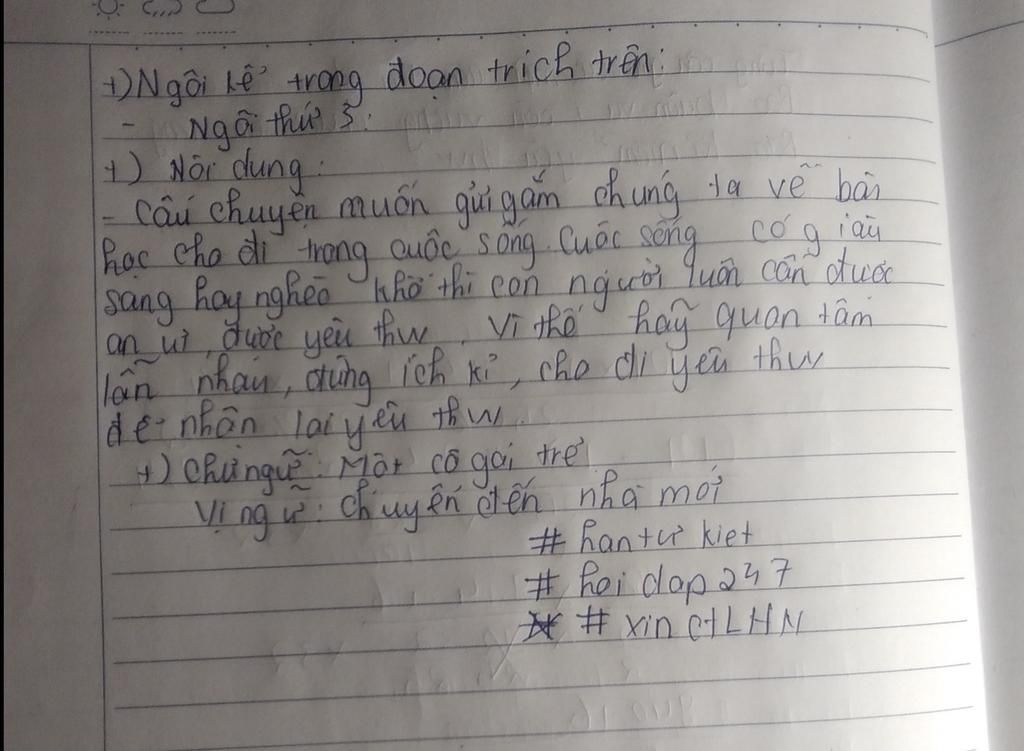 +) Ngôi kể trong đoạn trích trên:
- Ngôi thứ 3.
+) Nội dung:
- Câu chuyện muốn gửi gắm chúng ta về bài
học cho đi trong cuộc sống. Cuộc sống có giàu
sang hay nghèo khó thì con người luôn cần được
an ủi, được yêu thw. Vì thế hãy quan tâm
lẫn nhau, đừng ích kỉ, cho đi yêu thw
để nhận lại yêu thw.
+) Chủ ngữ: Một cô gái trẻ
Vị ngữ: Chuyển đến nhà mới
# han tư kiet
# hoi dap 247
# xin ctLHN